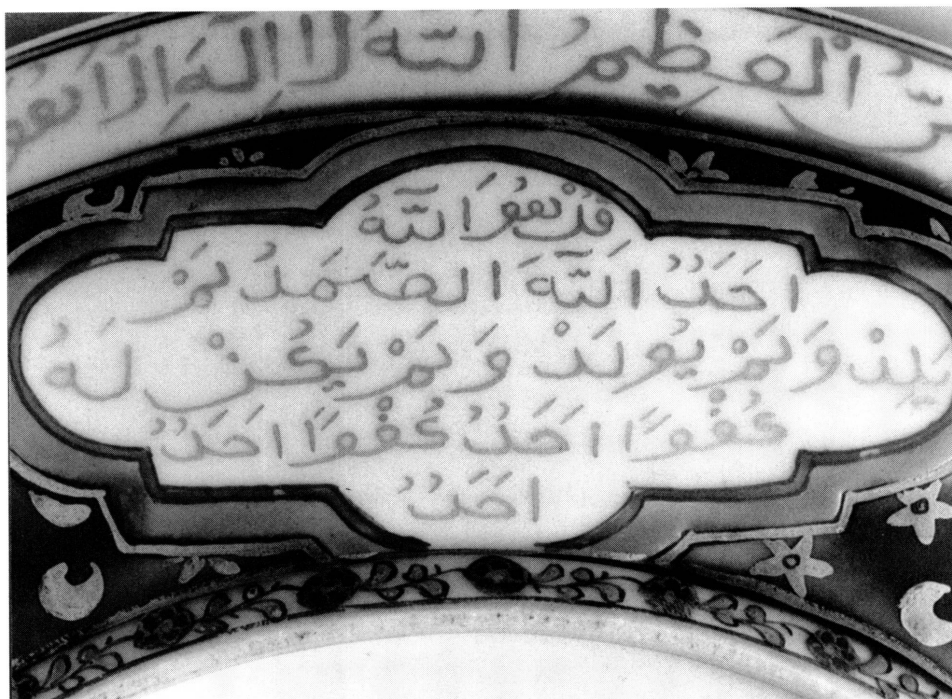 ٱلْعَظِيمِ ٱللَّهُ لَا إِلَٰهَ إِلَّا هُوَ
قُلْ هُوَ اللَّهُ
اَحَدٌ اَللَّهُ الصَّمَدُ لَمْ
يَلِدْ وَلَمْ يُولَدْ وَلَمْ يَكُنْ لَهُ
كُفُوًا اَحَدٌ كُفُوًا اَحَدٌ
اَحَدٌ